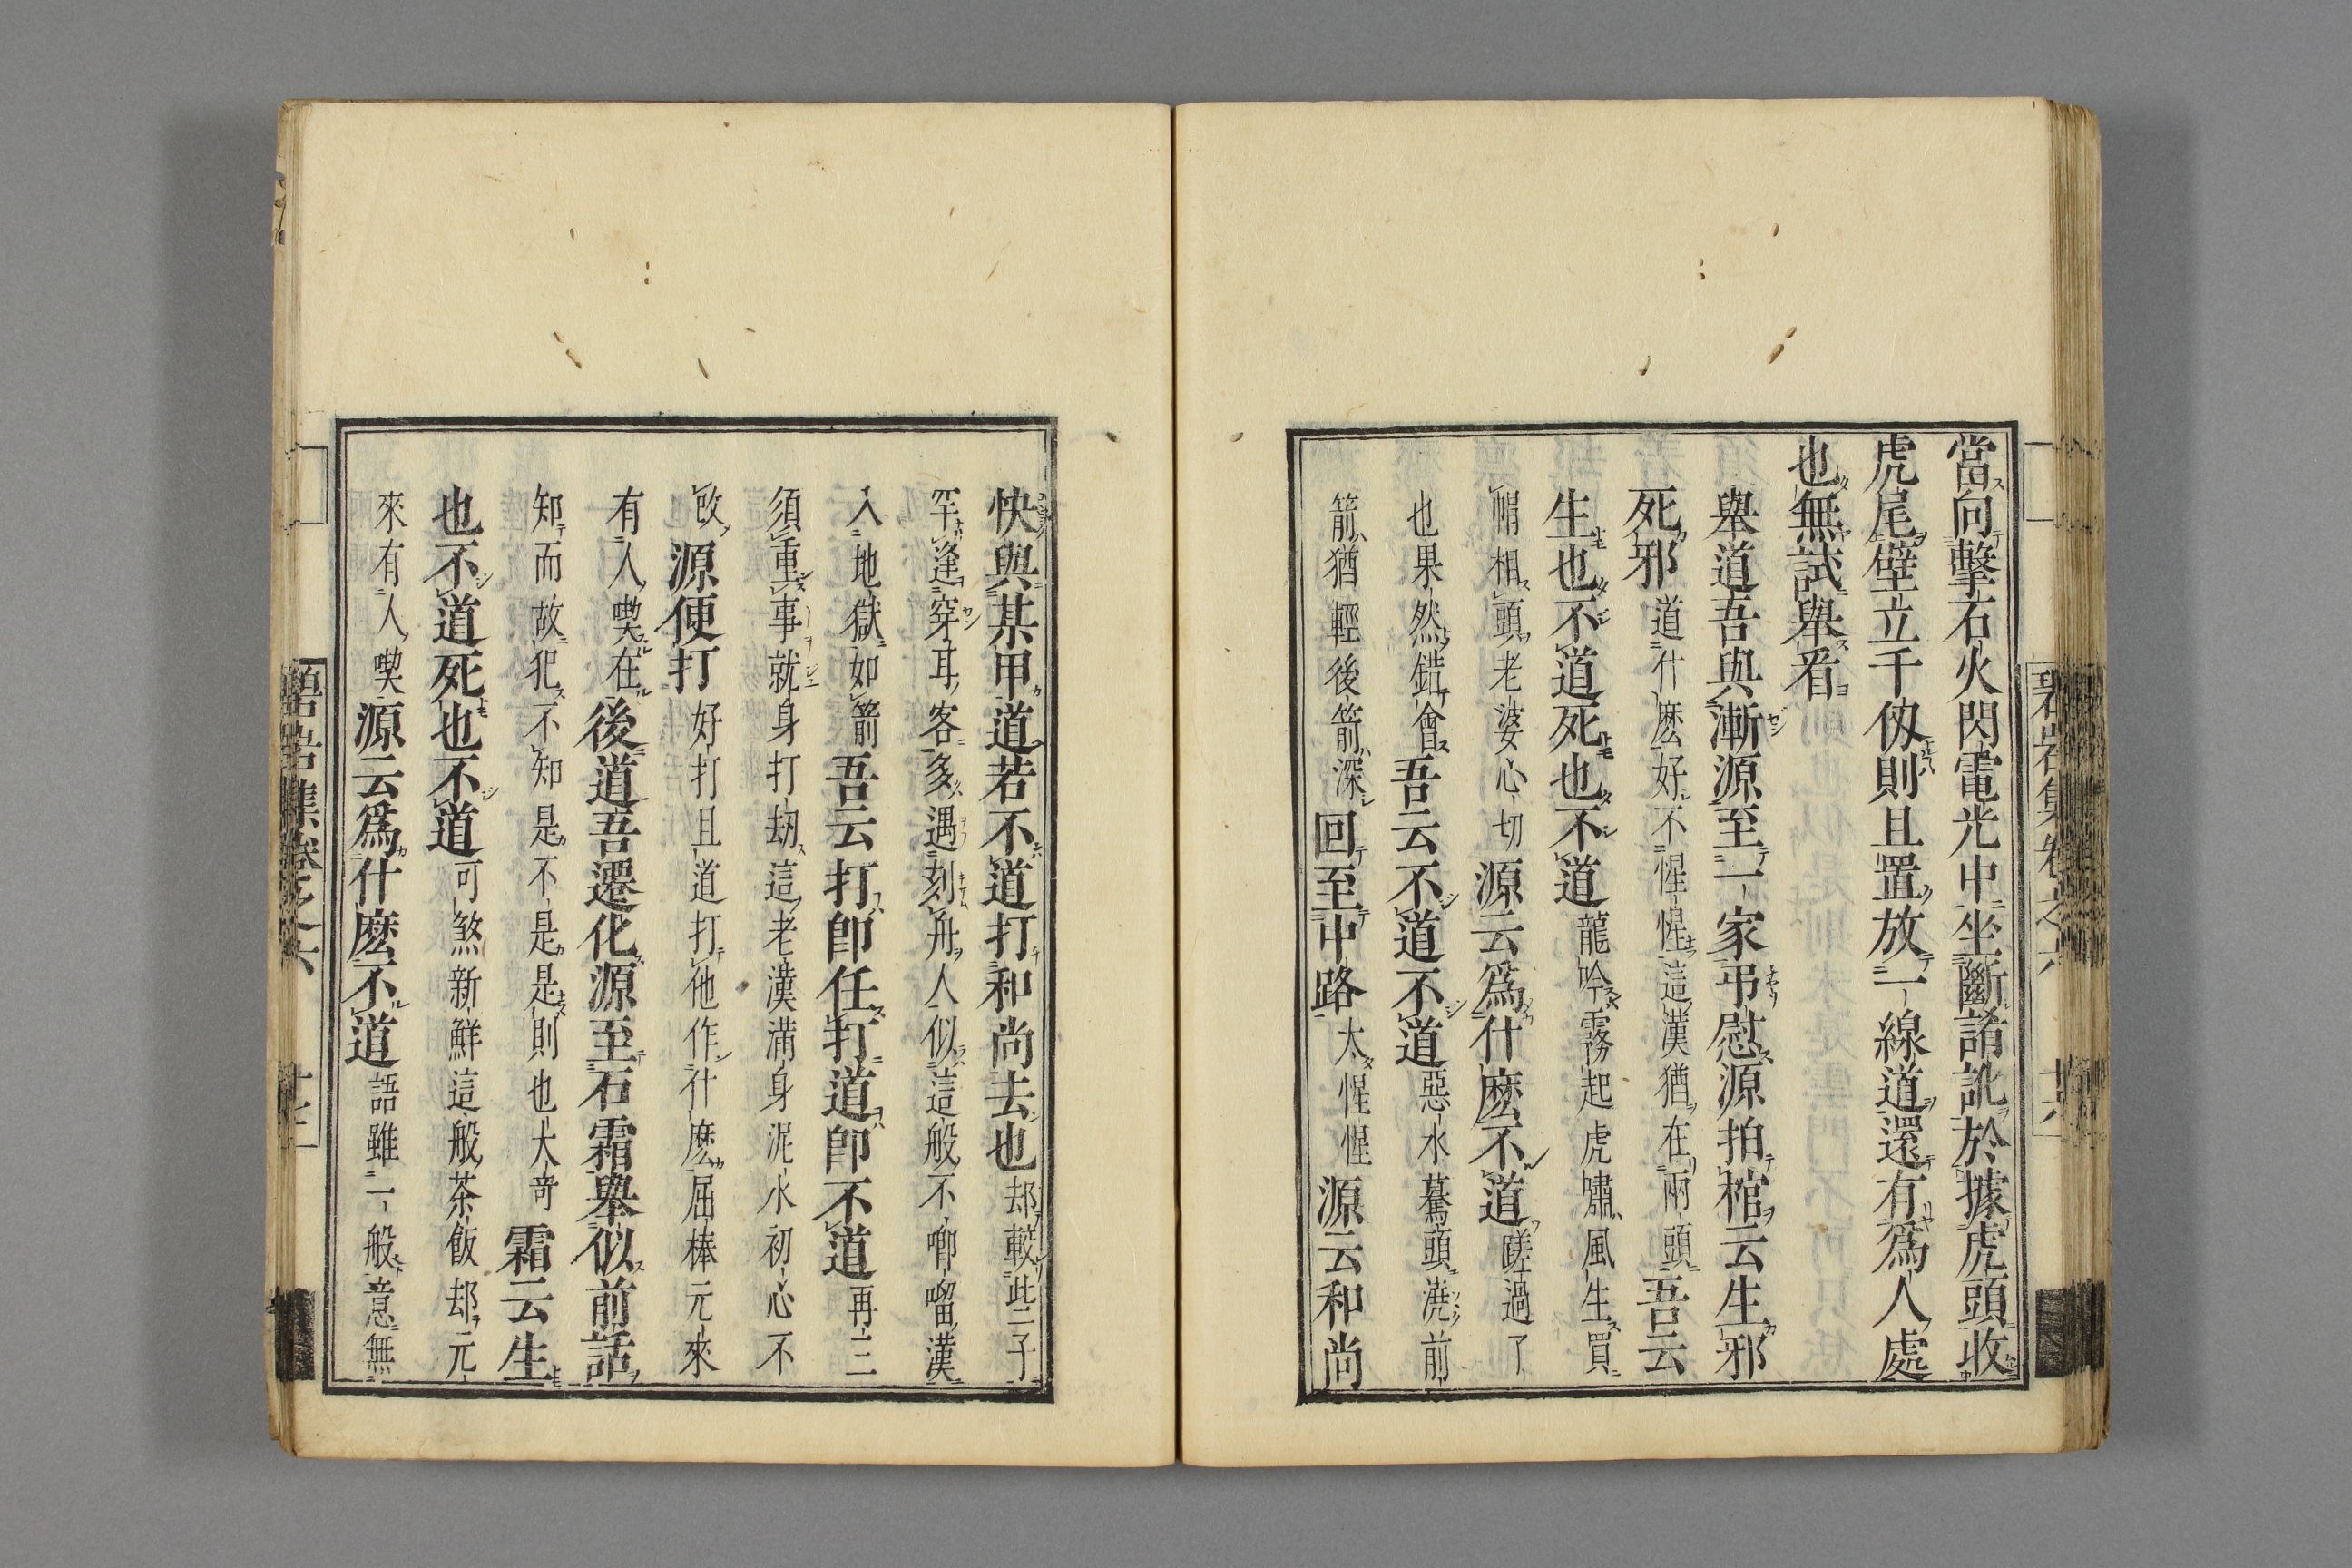 當向擊石火閃電光中坐斷誵訛於據虎頭收
虎尾壁立千仞則且置放一線道還有爲人處
也無試舉看
舉道吾與漸源至一家弔慰源拍棺云生邪
死邪道什麽好不惺惺這漢猶在兩頭吾云
生也不道死也不道龍吟霧起虎嘯風生買
帽相頭老婆心切源云爲什麽不道蹉過了
也果然錯會吾云不道不道惡水驀頭澆前
箭猶輕後箭深回至中路太惺惺源云和尚
快與某甲道若不道打和尚去也却較些子
罕逢穿耳客多遇刻舟人似這般不唧𠺕漢
入地獄如箭吾云打卽任打道卽不道再三
須重事就身打劫這老漢滿身泥水初心不
改源便打好打且道打他作什麽屈棒元來
有人喫在後道吾遷化源至石霜舉似前話
知而故犯不知是不是是則也大奇霜云生
也不道死也不道可煞新鮮這般茶飯却元
來有人喫源云爲什麽不道語雖一般意無